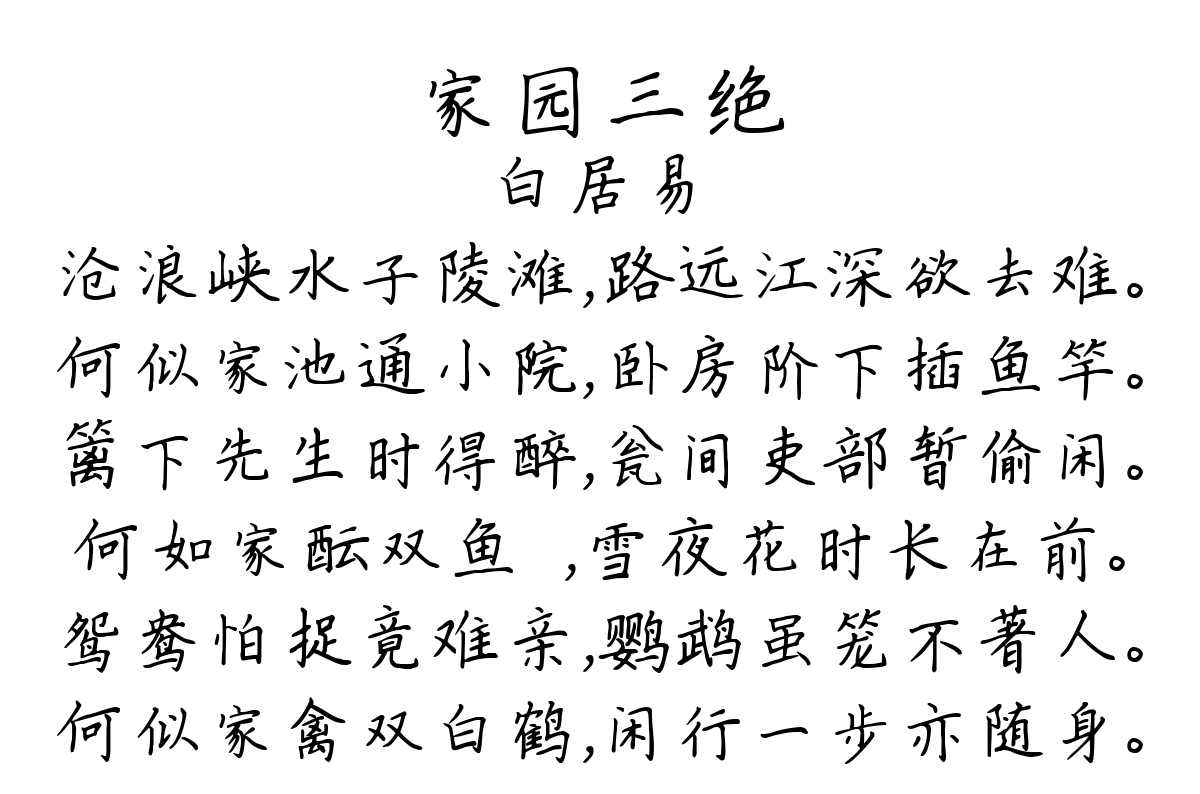 家园三绝
白居易
沧浪峡水子陵滩,路远江深欲去难。
何似家池通小院,卧房阶下插鱼竿。
篱下先生时得醉,瓮间吏部暂偷闲。
何如家酝双鱼 ,雪夜花时长在前。
鸳鸯怕捉竟难亲,鹦鹉虽笼不著人。
何似家禽双白鹤,闲行一步亦随身。